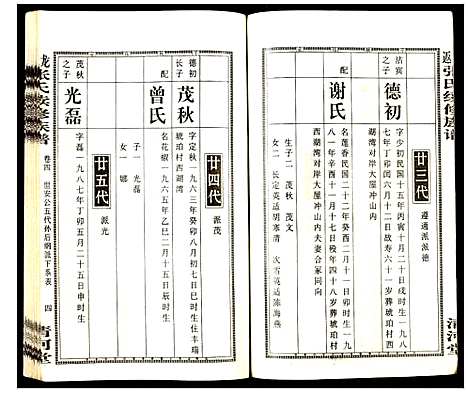 张氏续修族谱
廿三代
遵通派派德
洁宾
之子
德初
字少初民国十五年丙寅十月二十日戌时生一九八
七年丁卯闰六月十二日故寿六十一岁葬琥珀村西
湖湾对岸大屋冲山内
配
谢氏
名莲香民国二十二年癸酉二月十一日卯时生一九
西湖湾对岸大屋冲山内夫妻合冢同向
生子二 茂秋 茂文
女二 长定英适胡寒清
清河堂
廿四代
派茂
德初
长子
茂秋
字定秋一九六三年癸卯八月初七日巳时生住丰瑞
琥珀村西湖湾
配
曾氏
名花椒一九六五年乙巳二月十五日辰时生
子一 光磊
女一 娜
廿五代
派光
茂秋
之子
光磊
字磊一九八七年丁卯五月二十日申时生
氏续修族谱
卷四
世安公五代孙后纲派下系表
四
清河堂